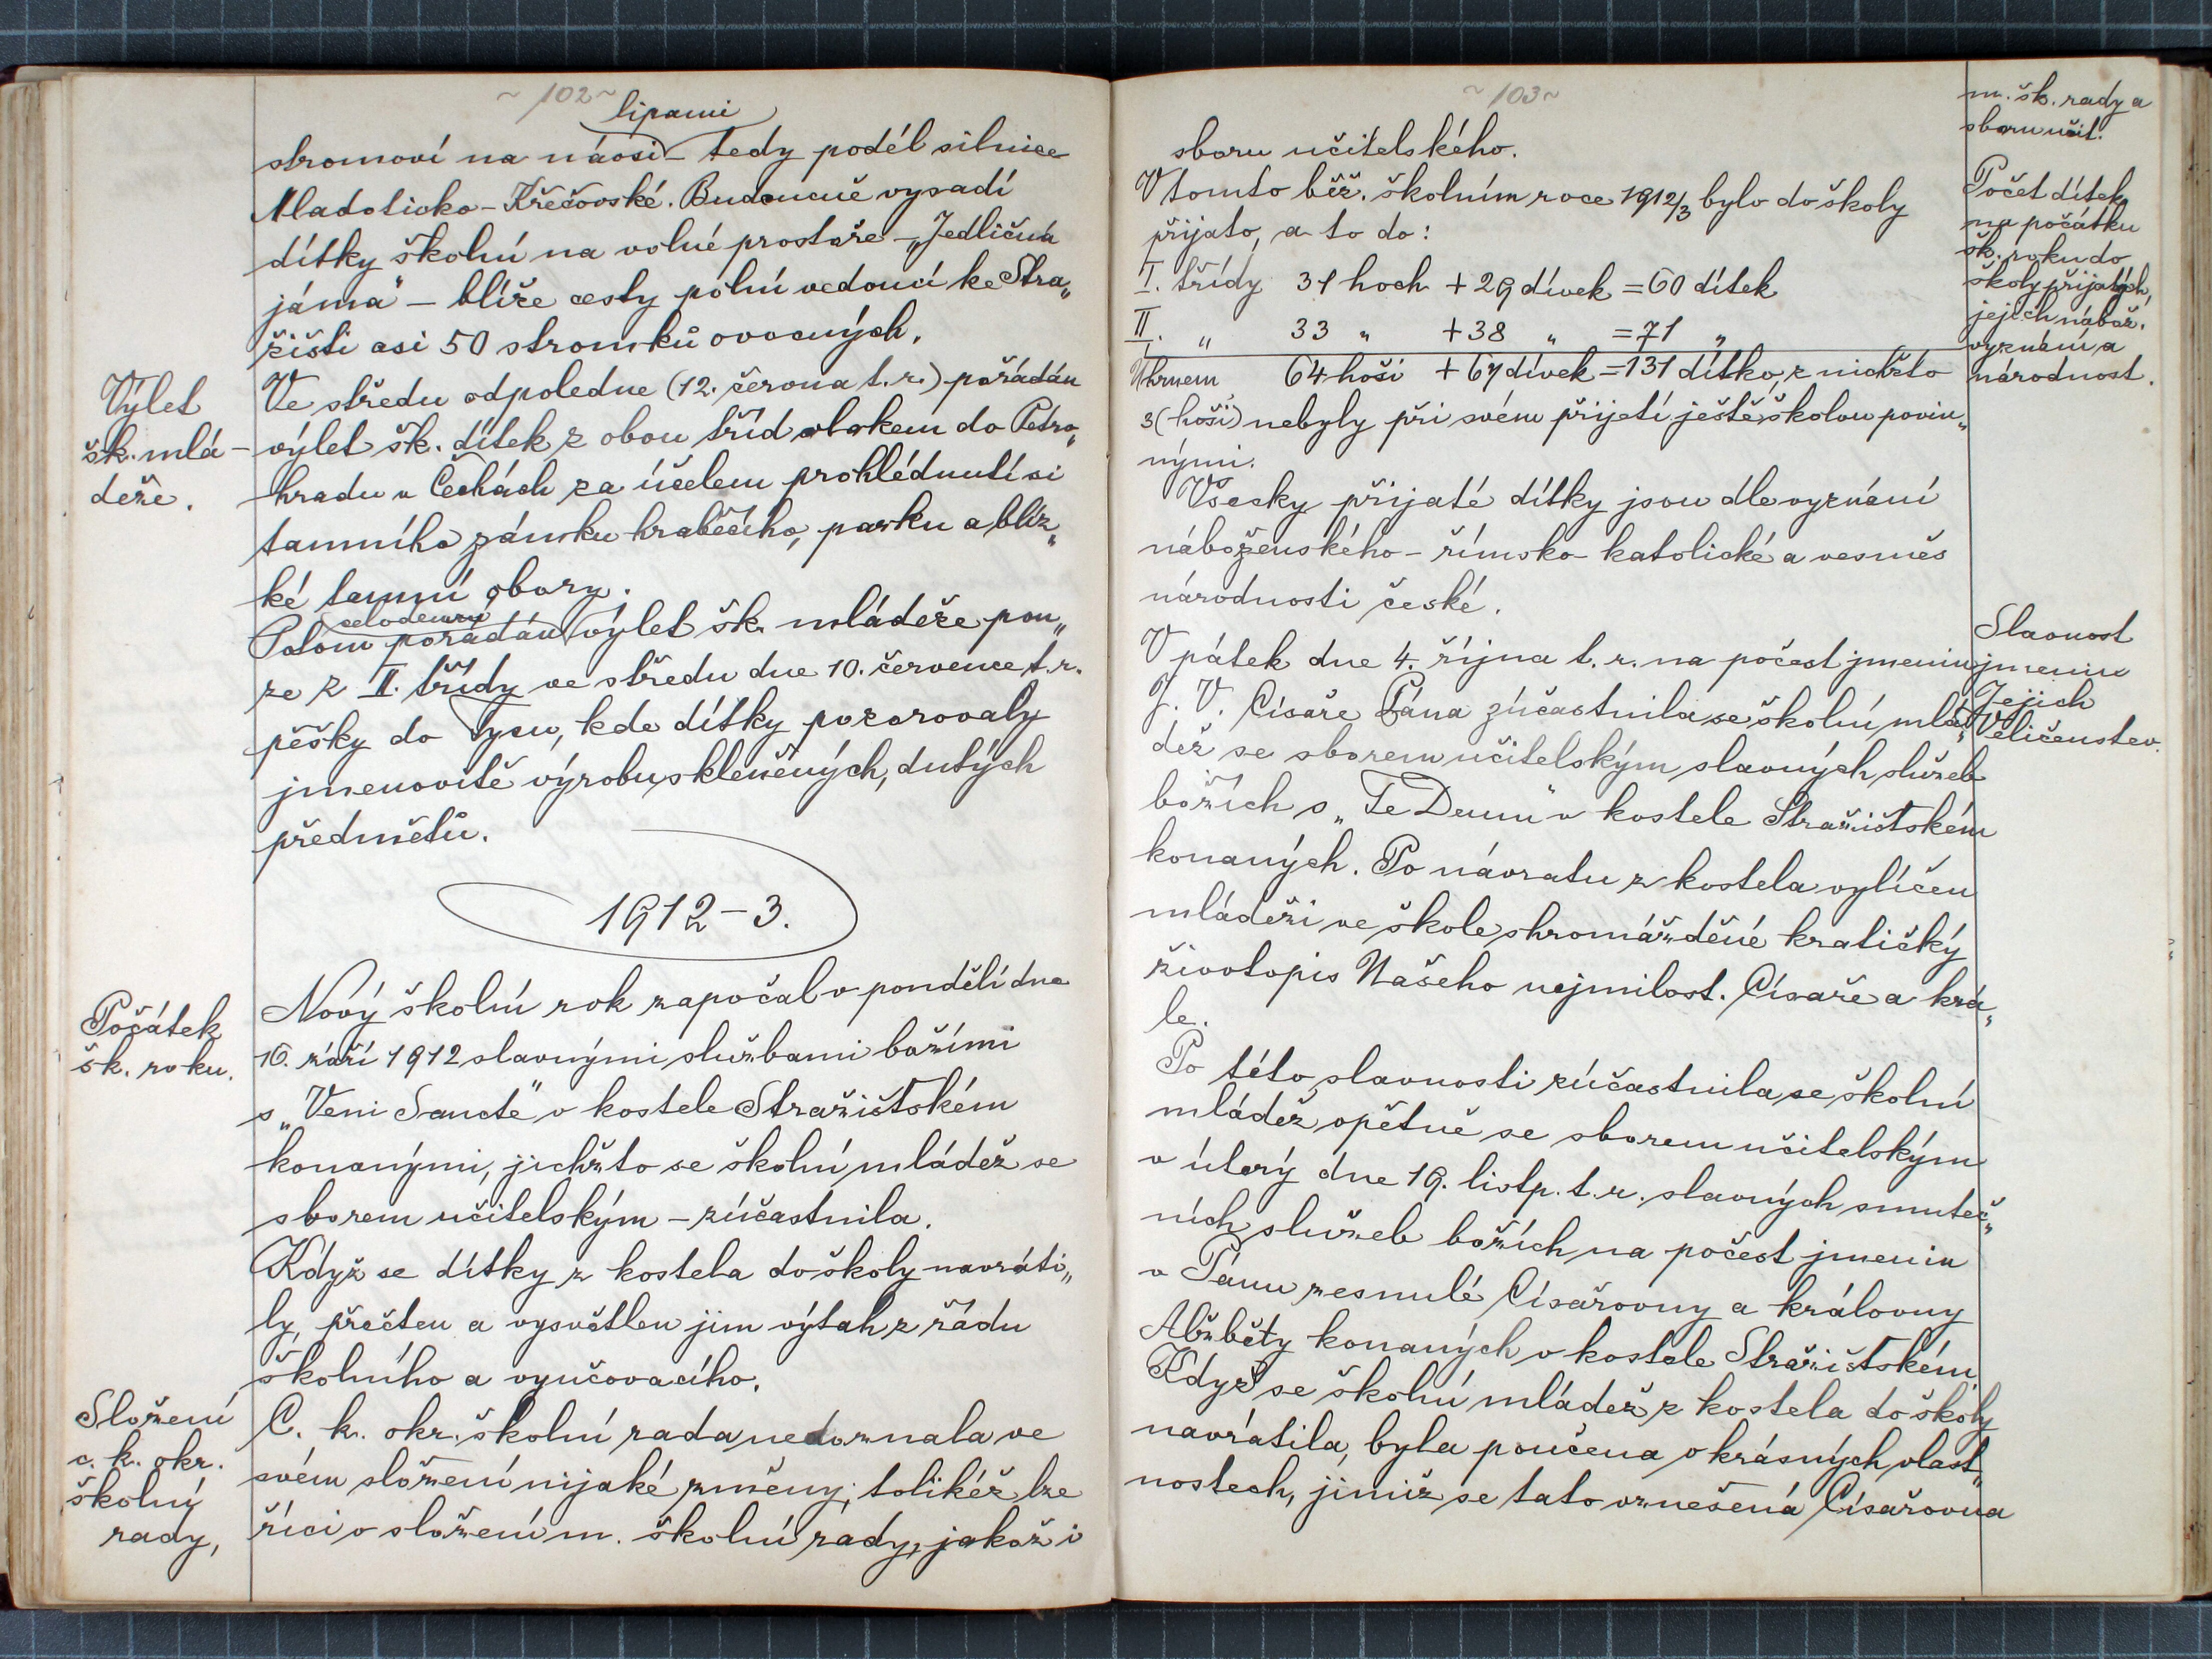 ~ 102 ~
lipami
stromoví na návsi - tedy podél silnice
Mladoticko - Křečovské. Budoucně vysadí
dítky školní na volné prostoře - „Jedličná
jáma" - blíže cesty polní vedoucí ke Stra„
žišti asi 50 stromků ovocných.
Výlet
šk. mlá-
deže.
Ve středu odpoledne (12. června t. r.) pořádán
výlet šk. dítek z obou tříd vlakem do Petro„
hradu v Čechách za účelem prohlédnutí si
tamního zámku hraběcího, parku a blíz„
ké tamní obory.
celodenní
Potom pořádán výlet šk. mládeže pou„
ze z II. třídy ve středu dne 10. července t. r.
pěšky do Tysu, kde dítky pozorovaly
jmenovitě výrobu skleněných, dutých
předmětů.
1912-3.
Počátek
šk. roku.
Nový školní rok započal v pondělí dne
16. září 1912 slavnými službami božími
s „Veni Sancte" v kostele Stražištském
konanými, jichžto se školní mládež se
sborem učitelským - zúčastnila.
Když se dítky z kostela do školy navráti„
ly, přečten a vysvětlen jim výtah z řádu
školního a vyučovacího.
Složení
c. k. okr.
školný
rady,
C. k. okr. školní rada nedoznala ve
svém složení nijaké změny; tolikéž lze
říci o složení m. školní rady, jakož i
~ 103 ~
m. šk. rady a
sboru učit.
sboru učitelského.
Počet dítek
na počátku
šk. roku do
školy přijatých,
jejich nábož.
vyznání a
národnost.
V tomto běž. školním roce 1912/3 bylo do školy
přijato, a to do:
I. třídy 31 hoch + 29 dívek = 60 dítek
II. " 33 " + 38 " = 71 "
Úhrnem 64 hoši + 67 dívek = 131 dítko, z nichžto
3 (hoši) nebyly při svém přijetí ještě školou povin„
nými.
Všecky přijaté dítky jsou dle vyznání
náboženského - římsko-katolické a vesměs
národnosti české.
Slavnost
jmenin
Jejich
Veličenstev.
V pátek dne 4. října t. r. na počest jmenin
J. V. Císaře Pána zúčastnila se školní mlá„
dež se sborem učitelským slavných služeb
božích s „Te Deum" v kostele Stražištském
konaných. Po návratu z kostela vylíčen
mládeži ve škole shromážděné kratičký
životopis Našeho nejmilost. Císaře a krá„
le.
Po této slavnosti zúčastnila se školní
mládež opětně se sborem učitelským
v úterý dne 19. listp. t. r. slavných smuteč„
ních služeb božích na počest jmenin
v Pánu zesnulé Císařovny a královny
Alžběty konaných v kostele Stražištském.
Když se školní mládež z kostela do školy
navrátila, byla poučena o krásných vlast„
nostech, jimiž se tato vznešená Císařovna